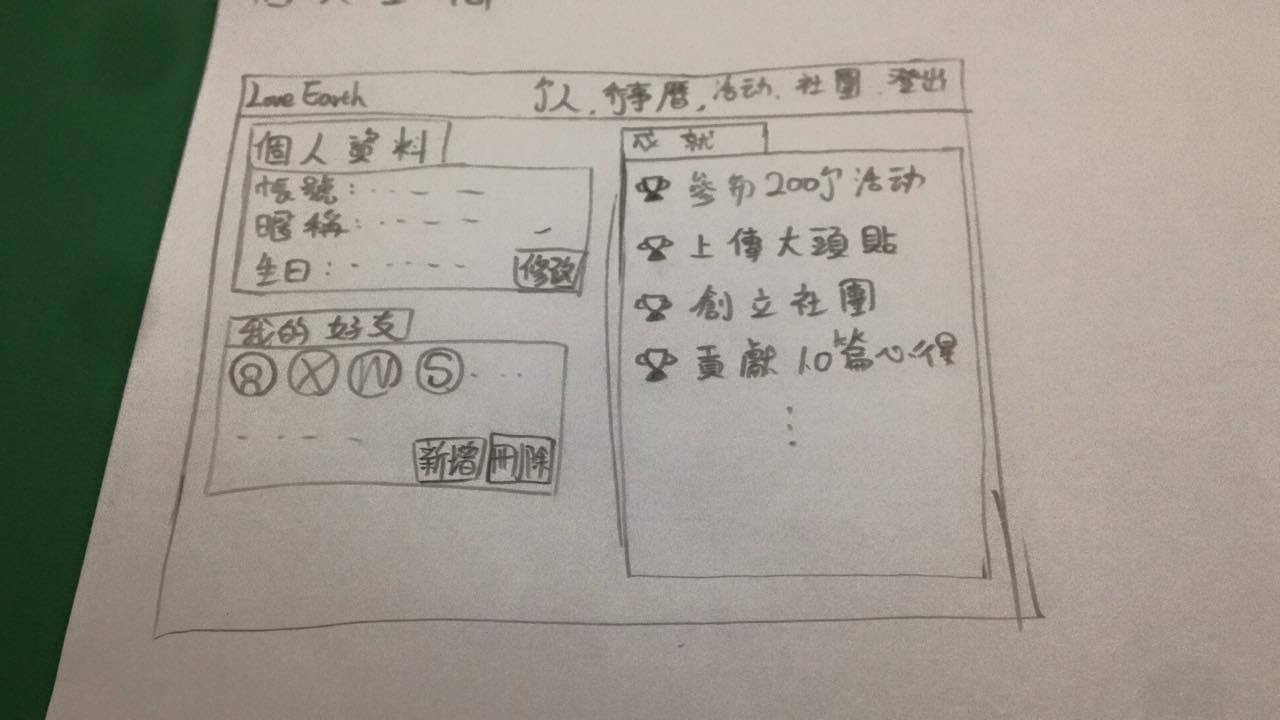 Love Earth 个人, 行事曆, 活动, 社團, 登出
個人資料
帳號:
暱稱:
生日:
修改
我的好友
R X W S
新增 刪除
成就
參加200个活动
上傳大頭貼
創立社團
貢獻10篇心得